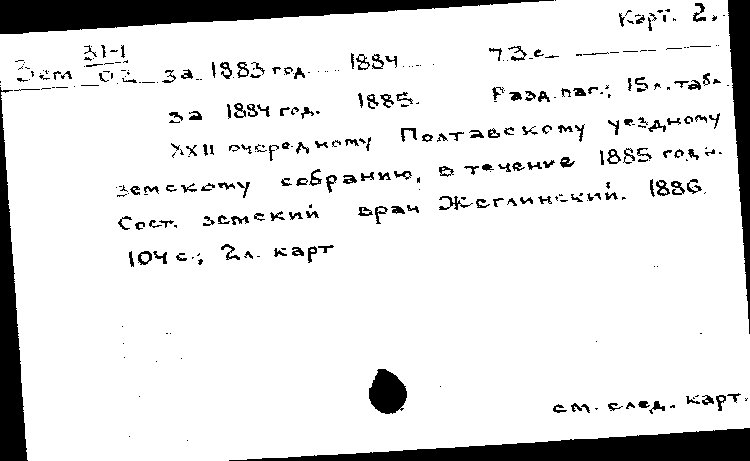 Карт. 2.
31-1
Зем 02 за 1883 год 1884 73 с
за 1884 год. 1885. Разд. паг.; 15 л. табл
XXII очередному Полтавскому уездному
земскому собранию, в течение 1885 года.
Сост. земский врач Жеглинский. 1886.
104 с.; 2 л. карт
см. след. карт.